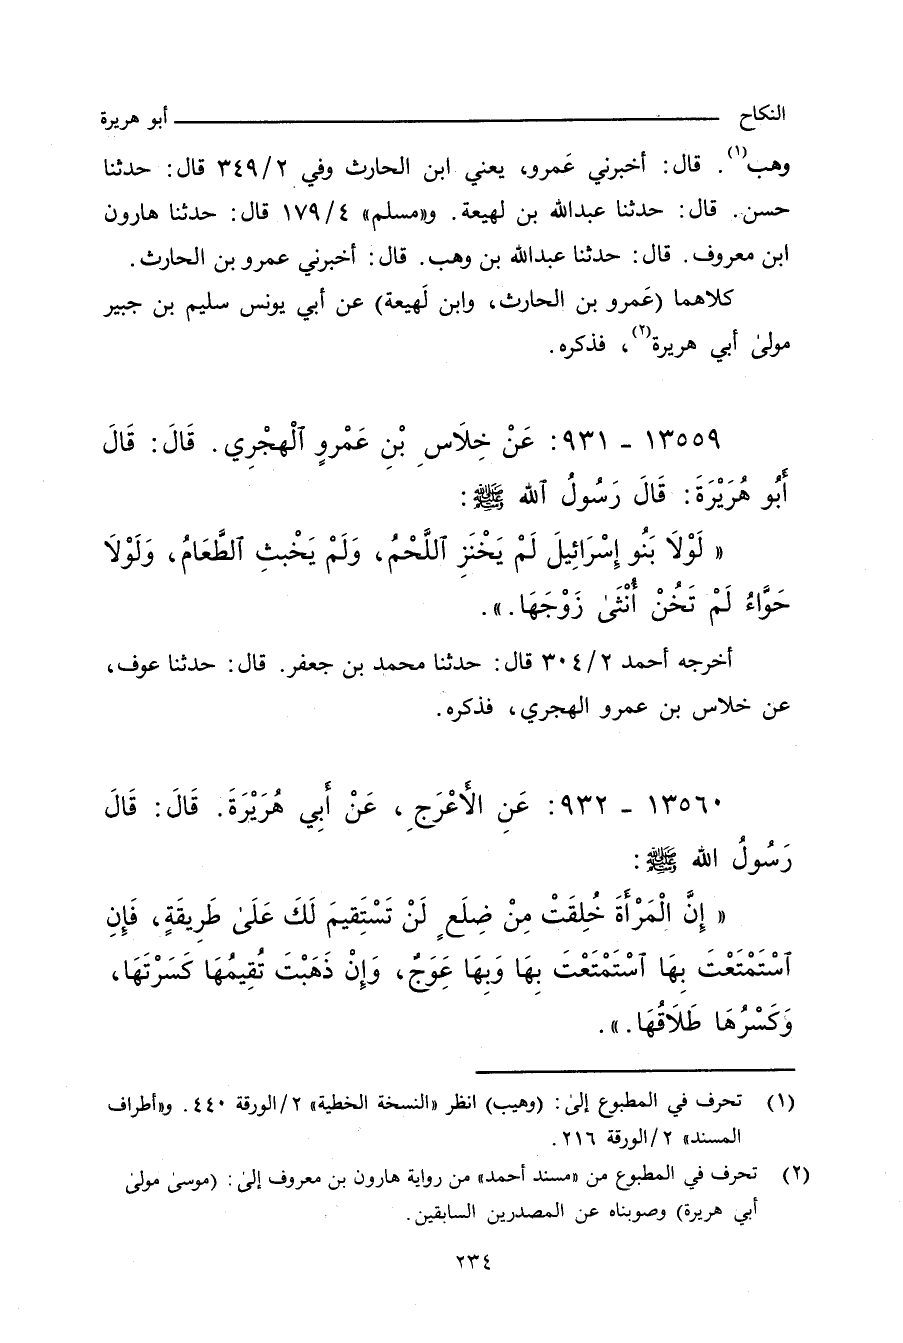 النكاح ــــــــــ أبو هريرة
وهب(١). قال: أخبرني عَمرو، يعني ابن الحارث وفي ٣٤٩/٢ قال: حدثنا
حسن. قال: حدثنا عبدالله بن لهيعة. و«مسلم» ١٧٩/٤ قال: حدثنا هارون
ابن معروف. قال: حدثنا عبدالله بن وهب. قال: أخبرني عمرو بن الحارث.
كلاهما (عَمرو بن الحارث، وابن لَهيعة) عن أبي يونس سليم بن جبير
مولىٰ أبي هريرة(٢)، فذكره.
١٣٥٥٩ - ٩٣١: عَنْ خِلَاسِ بْنِ عَمْرٍو ٱلْهَجْرِي. قَالَ: قَالَ
أَبُو هُرَيْرَةَ: قَالَ رَسُولُ ٱلله ﷺ:
« لَوْلَا بَنُو إِسْرَائِيلَ لَمْ يَخْنَزِ ٱللَّحْمُ، وَلَمْ يَخْبثِ ٱلطَّعَامُ، وَلَوْلَا
حَوَّاءُ لَمْ تَخُنْ أُنْثَىٰ زَوْجَهَا.».
أخرجه أحمد ٣٠٤/٢ قال: حدثنا محمد بن جعفر. قال: حدثنا عوف،
عن خلاس بن عمرو الهجري، فذكره.
١٣٥٦٠ - ٩٣٢: عَنِ الأَعْرَجِ، عَنْ أَبِي هُرَيْرَةَ. قَالَ: قَالَ
رَسُولُ الله ﷺ:
« إِنَّ الْمَرْأَةَ خُلِقَتْ مِنْ ضِلَعٍ لَنْ تَسْتَقِيمَ لَكَ عَلَىٰ طَرِيقَةٍ، فَإِنِ
ٱسْتَمْتَعْتَ بِهَا ٱسْتَمْتَعْتَ بِهَا وَبِهَا عِوَجٌ، وَإِنْ ذَهَبْتَ تُقِيمُهَا كَسَرْتَهَا،
وَكَسْرُهَا طَلَاقُهَا.».
(١) تحرف في المطبوع إلىٰ: (وهيب) انظر «النسخة الخطية» ٢/الورقة ٤٤٠. و«أطراف
المسند» ٢/الورقة ٢١٦.
(٢) تحرف في المطبوع من «مسند أحمد» من رواية هارون بن معروف إلىٰ: (موسىٰ مولىٰ
أبي هريرة) وصوبناه عن المصدرين السابقين.
٢٣٤